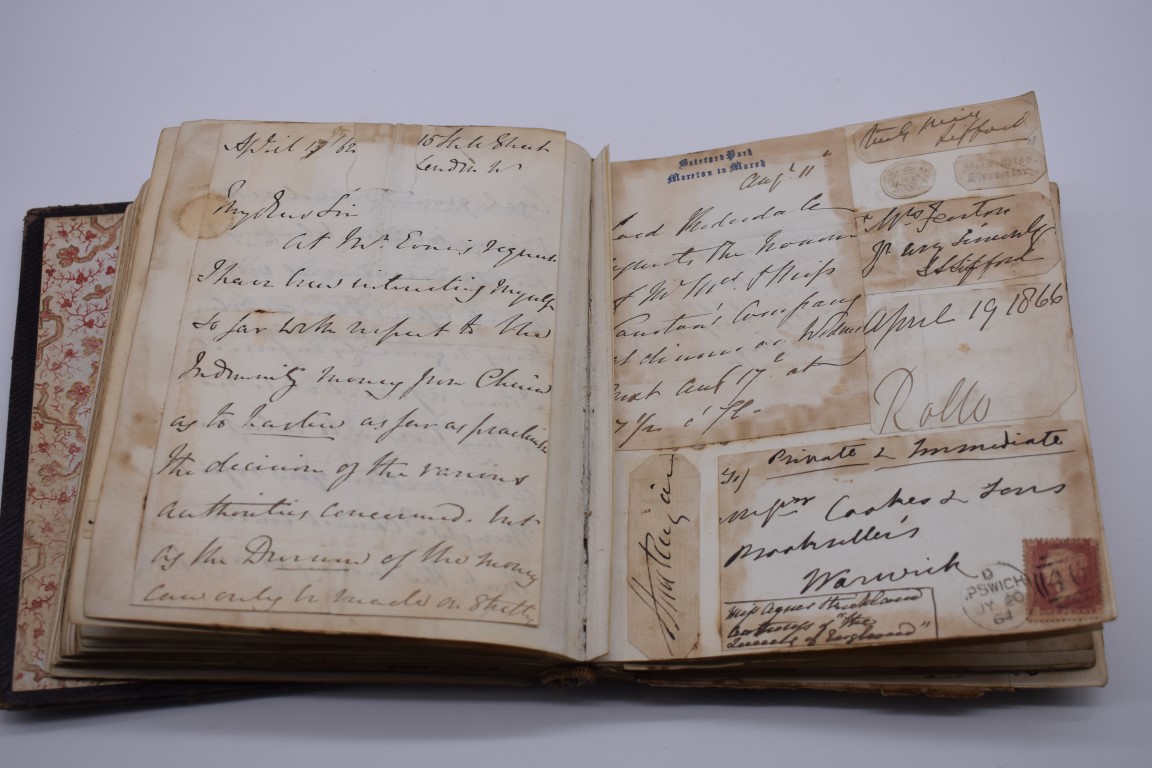 April 17 / 62
London W
My dear Sir
At Mr. Evans's request
I have been interesting myself
so far with respect to the
Indemnity money from China
as to hasten as far as practicable
the decision of the various
authorities concerned. but
as the Division of the money
can only be made on
Batsford Park
Moreton in Marsh
Augt 11
Lord Redesdale
requests the honour
of Mr Mrs & Miss
Company
at dinner on Wednes
next Augt 17 at
Sifford
Mrs Fenton
Yr very Sincerely
April 19 1866
Rollo
Private & Immediate
Messrs Cookes & Sons
Booksellers
Warwick
Miss Agnes Strickland
Authoress of "the
Queens of England"
D
IPSWICH
JY 20
64